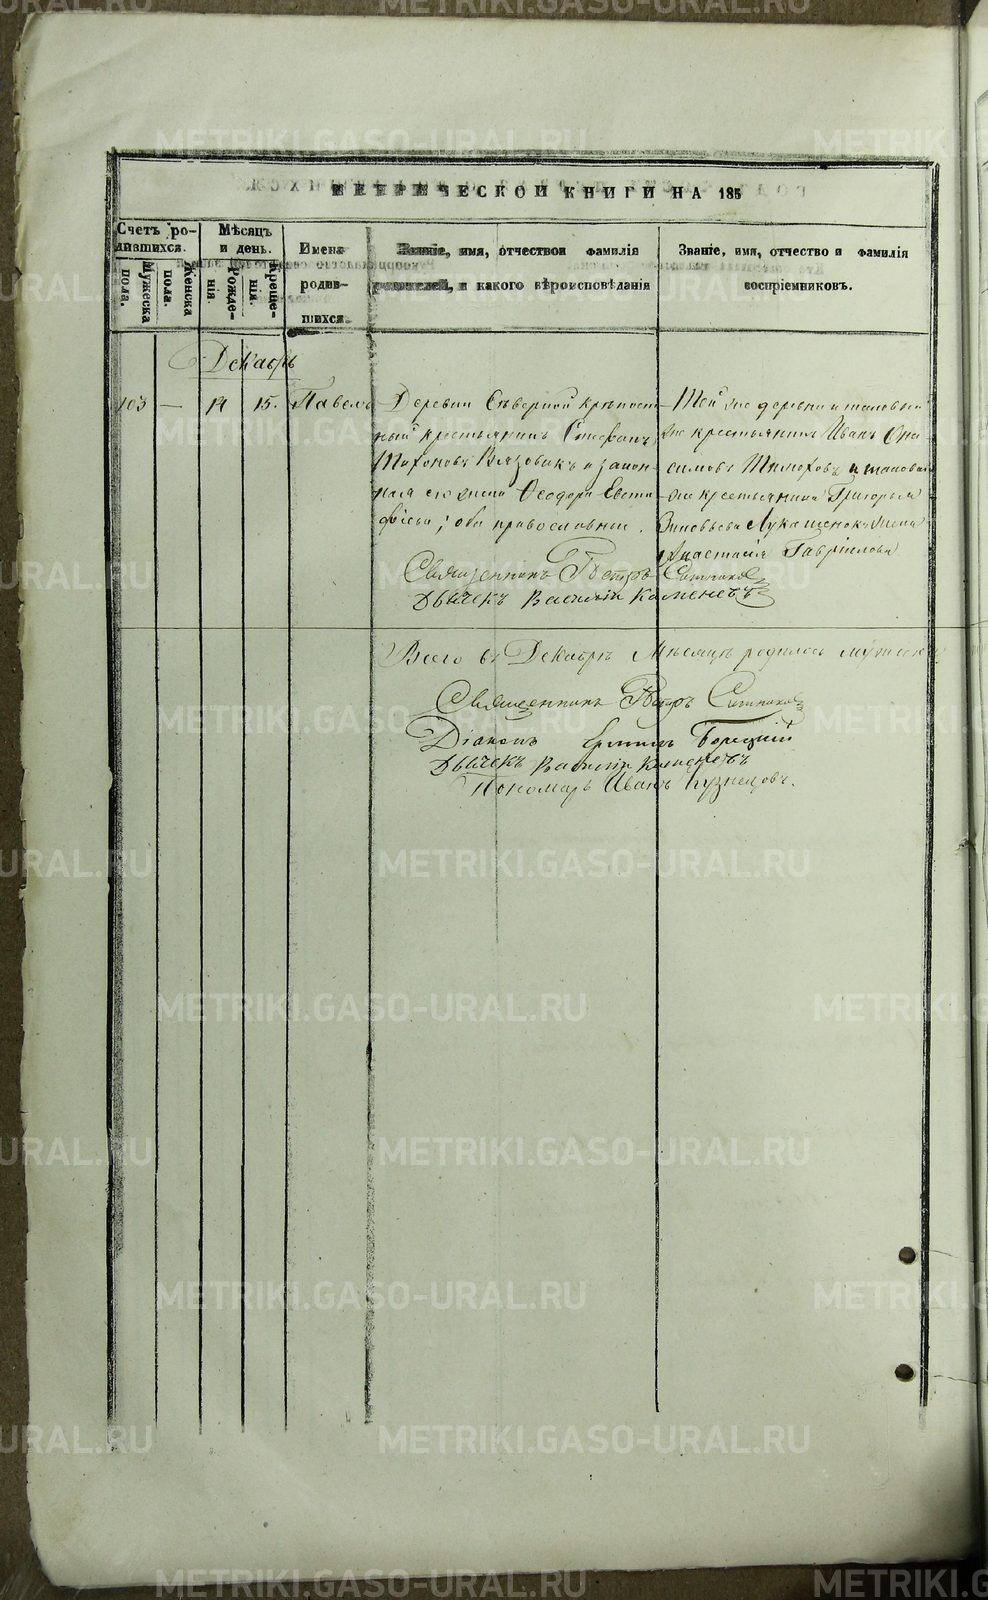 METRIKI.GASO-URAL.RU
МЕТРИЧЕСКОЙ КНИГИ НА 185
Счетъ ро-
дившихся.
Мужеска
пола.
Женска
пола.
Мѣсяцъ
и день.
Рожде-
нія.
Креще-
нія.
Имена
родив-
шихся.
Званіе, имя, отчество и фамилія
родителей, и какого вѣроисповѣданія
Званіе, имя, отчество и фамилія
воспріемниковъ.
Декабрь
103 — 14 15. Павелъ
Деревни Сѣверной крѣпост-
ный крестьянинъ Стефанъ
и закон-
ная его жена Ѳеодора Евста-
фіева; оба православные.
Той же деревни и таковый
же крестьянинъ Иванъ Она-
симовъ и таковаго
же крестьянина Григорья
Зиновьева жена
Анастасія Гавріилова
Священникъ Петръ
Дьячекъ Василій Каменевъ
Всего въ Декабрѣ Мѣсяцѣ родилось мужеска
Священникъ Петръ
Діаконъ
Дьячекъ Василій Каменевъ
Пономарь Иванъ Кузнецовъ.